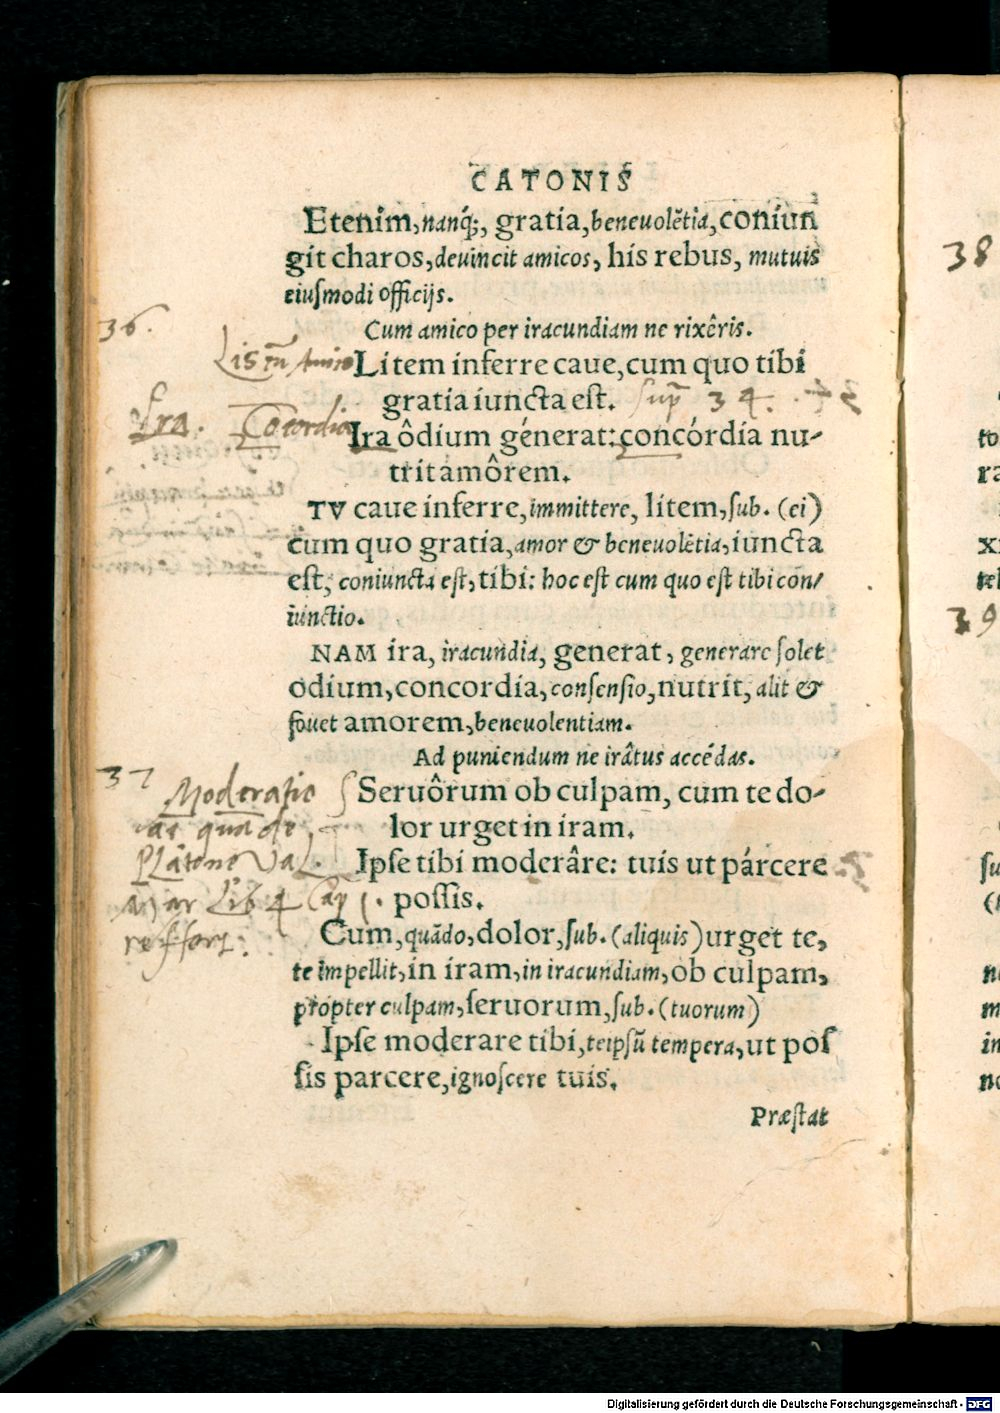 CATONIS
Etenim, nanq;, gratia, beneuolẽtia, coniun
git charos, deuincit amicos, his rebus, mutuis
eiusmodi officijs.
36.
Cum amico per iracundiam ne rixêris.
Litem inferre caue, cum quo tibi
gratia iuncta est. sup 34.
Ira. Cõcordia
Ira ôdium génerat: concórdia nu-
trit amôrem.
TV caue inferre, immittere, litem, sub. (ei)
cum quo gratia, amor & beneuolẽtia, iuncta
est, coniuncta est, tibi: hoc est cum quo est tibi con/
iunctio.
NAM ira, iracundia, generat, generare solet
odium, concordia, consensio, nutrit, alit &
fouet amorem, beneuolentiam.
Ad puniendum ne irâtus accédas.
37
Moderatio
Seruôrum ob culpam, cum te do-
lor urget in iram.
Platone Val.
Ipse tibi moderâre: tuis ut párcere
Lib 4 Cap 1.
possis.
Cum, quãdo, dolor, sub. (aliquis) urget te,
te impellit, in iram, in iracundiam, ob culpam,
propter culpam, seruorum, sub. (tuorum)
Ipse moderare tibi, teipsũ tempera, ut pos
sis parcere, ignoscere tuis.
Præstat
38
39
Digitalisierung gefördert durch die Deutsche Forschungsgemeinschaft - DFG